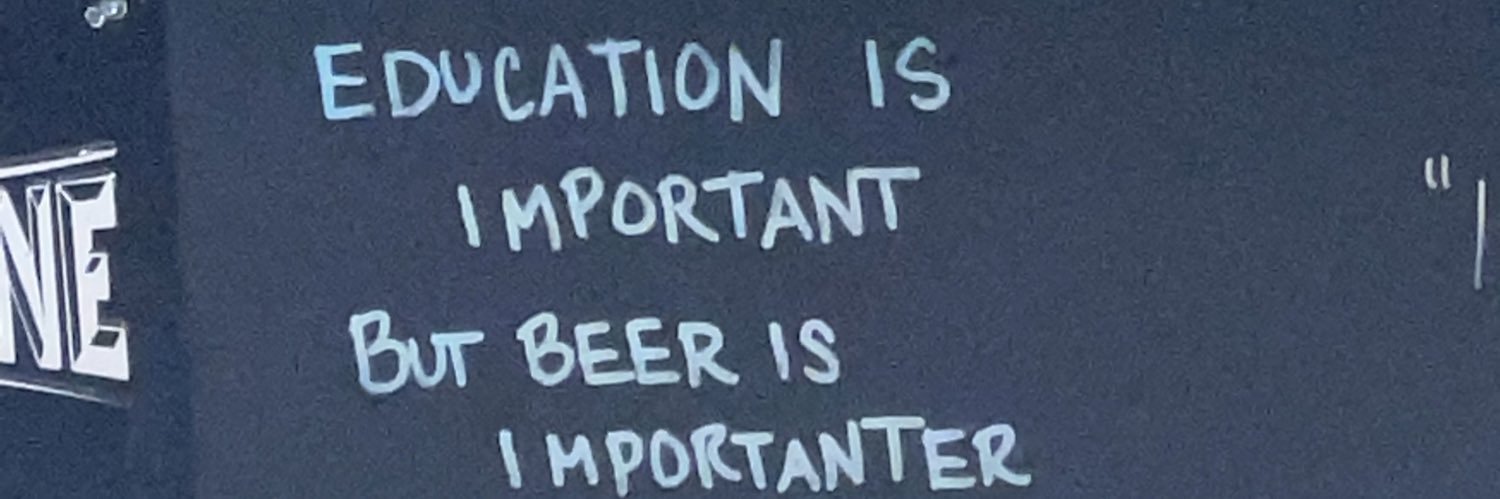 EDUCATION IS
IMPORTANT
BUT BEER IS
IMPORTANTER
NE